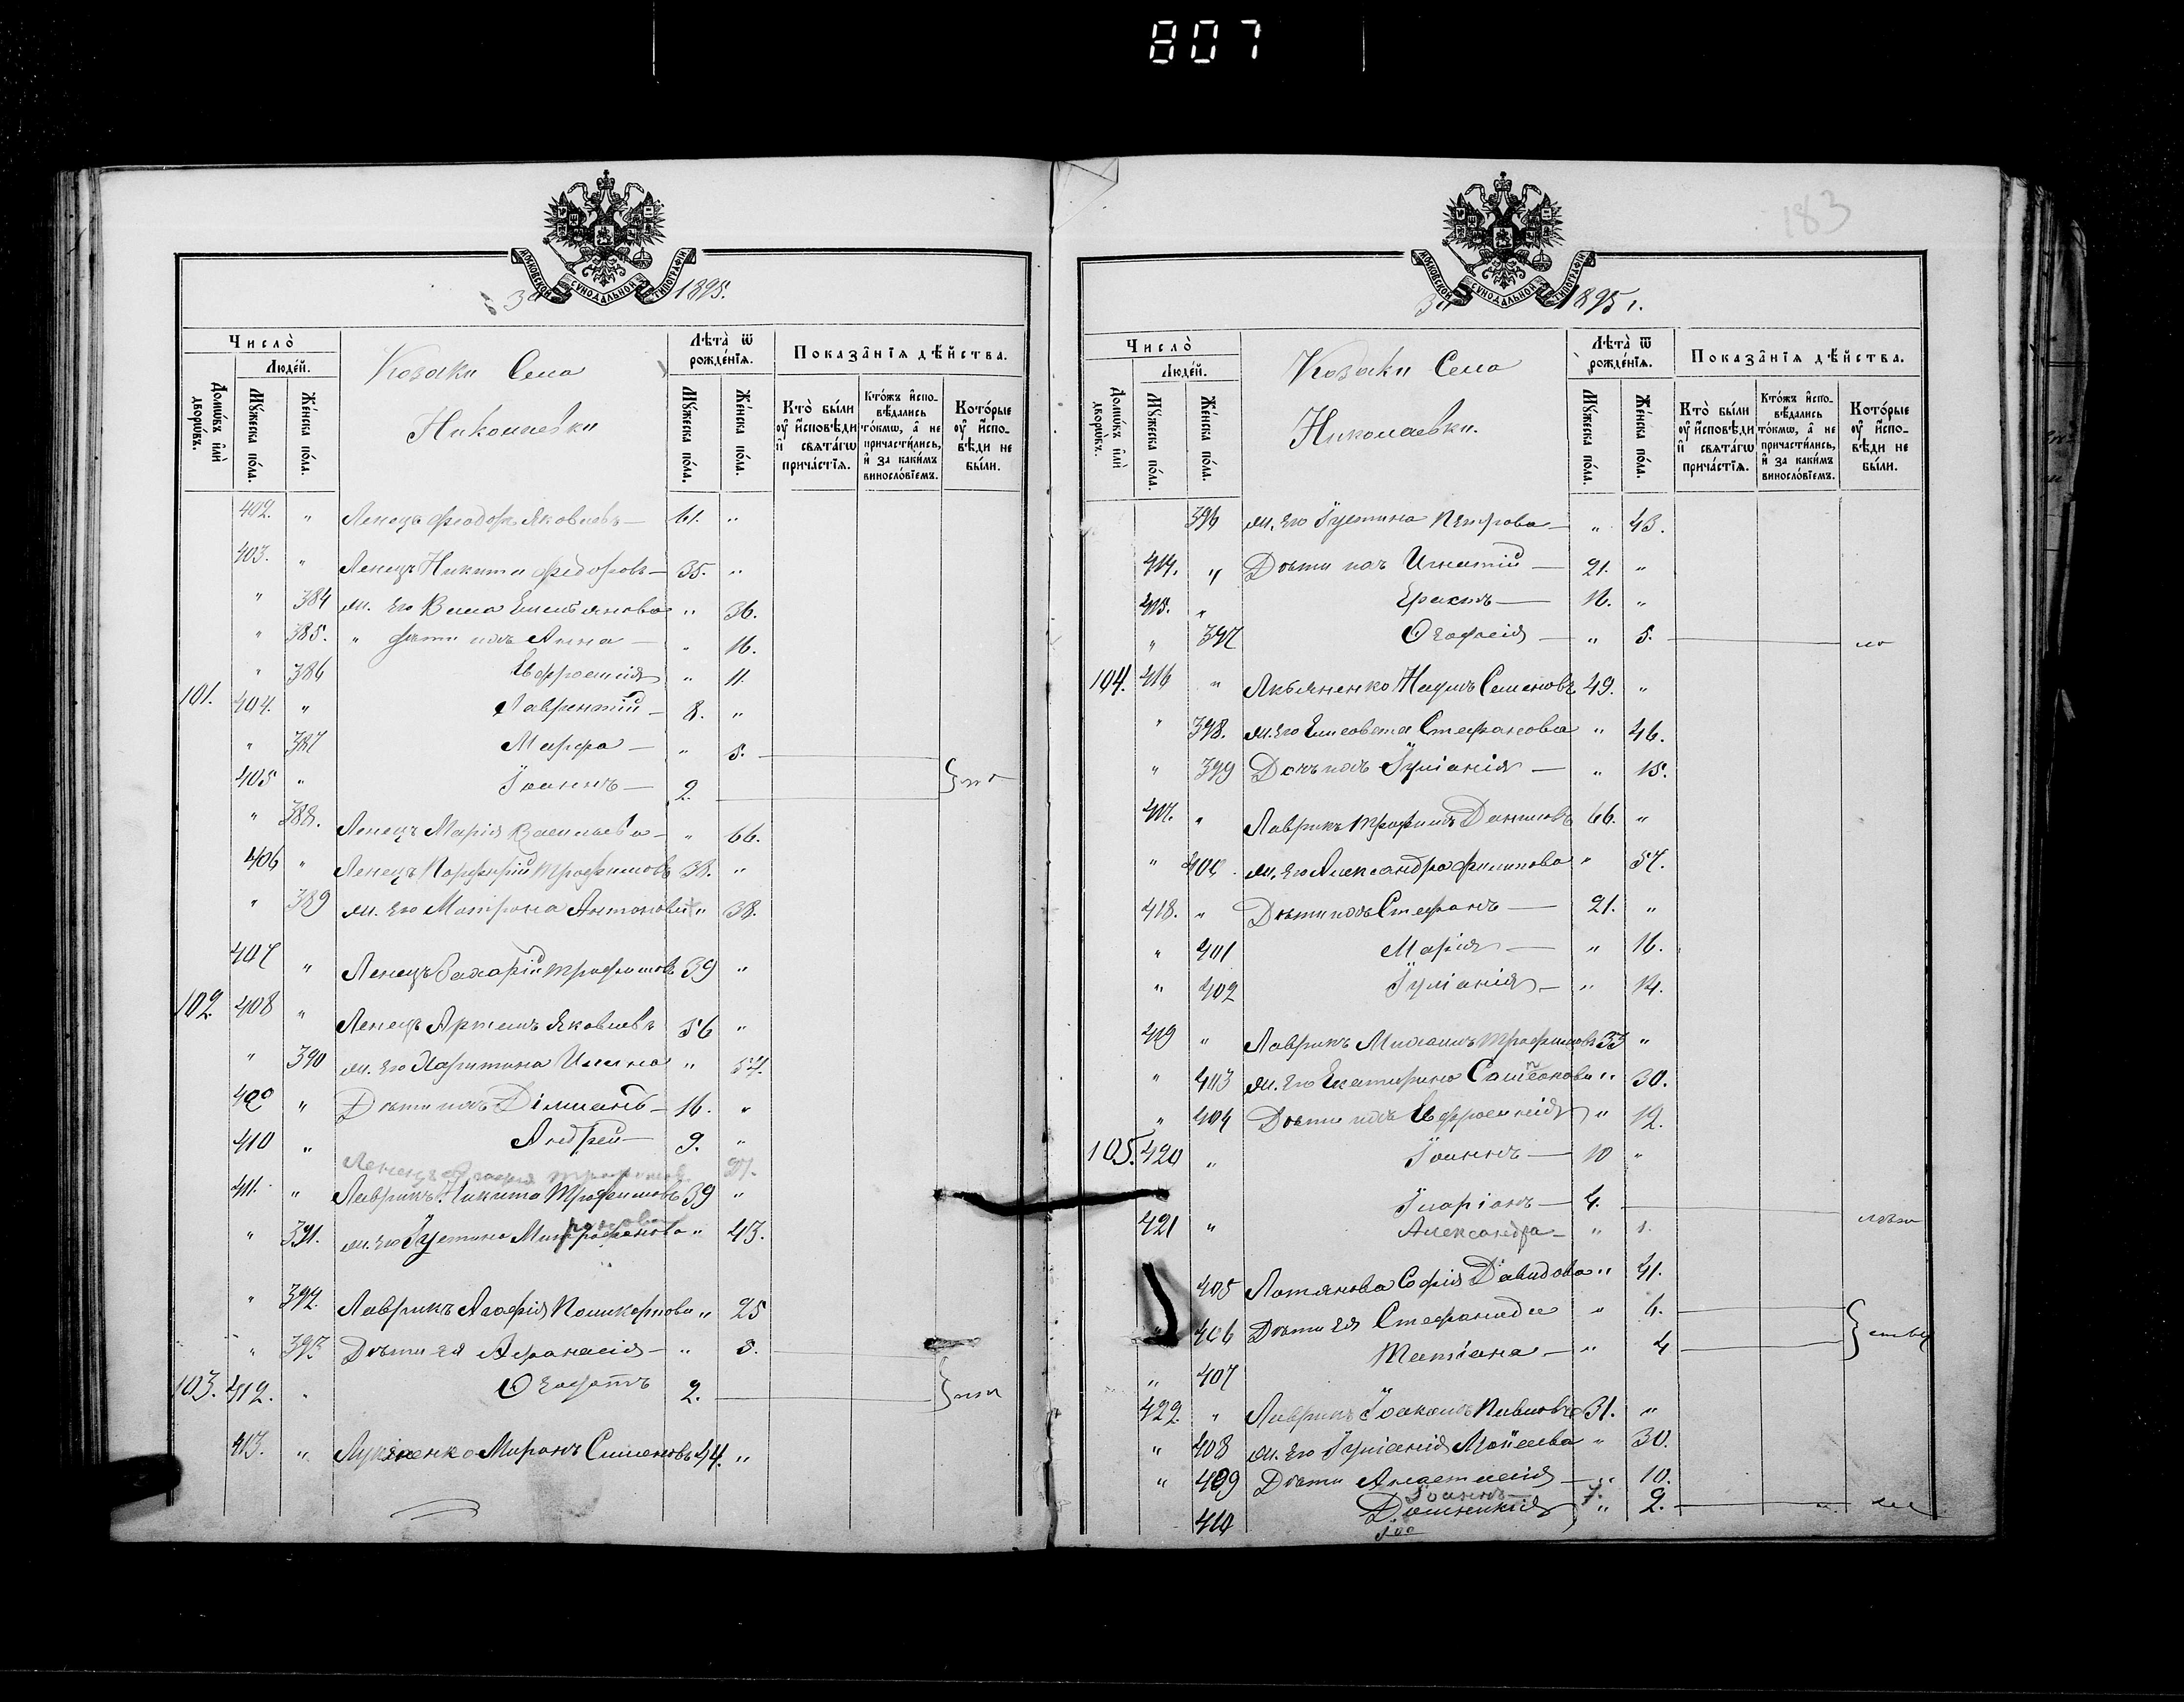 807
МОСКОВСКОЙ СѴНОДАЛЬНОЙ ТИПОГРАФІИ
За 1895.
Число̀
Людей.
Домѡвъ и҆лѝ дворѡвъ.
Мꙋжеска по́ла.
Же́нска по́ла.
Козаки Села
Николаевки
Лѣта̀ ѿ рожде́нїѧ.
Мꙋжеска по́ла.
Же́нска по́ла.
Показа̑нїѧ дѣ́йства.
Кто̀ бы́ли оу҆ и҆сповѣди и҆ свѧта́гѡ прича́стїѧ.
Кто́жъ и҆спо-вѣдались то́кмѡ, а҆ не причасти́лись, и҆ за каки́мъ винословїемъ.
Кото́рые оу҆ и҆спо-вѣди не бы́ли.
402. " Ленецъ Феодоръ Яковлевъ — 61. "
403. " Ленецъ Никита Федоровъ — 35. "
" 384 ж. его Васса Емельянова " 36.
" 385. " дѣти ихъ Анна — " 16.
" 386 Евфросинія " 11.
101. 404. " Лаврентій — 8. "
" 387 Марфа — " 5.
405 " Іоаннъ — 2.
" 388. Ленецъ Марія Васильева — " 66.
406 " Ленецъ Порфирій Трофимовъ 38. "
" 389 ж. его Матрона Антонова " 38.
407 " Ленецъ Захарій Трофимовъ 39 "
102. 408 " Ленецъ Артемъ Яковлевъ 56 "
" 390 ж. его Харитина Ильина " 54.
" Дѣти ихъ — 16. "
410 " Андрей — 9. "
Ленецъ Трофимов 27.
411. " Лаврикъ Никита Трофимовъ 39 "
" 391. ж. его Іустина " 43.
" 392. Лаврикъ Агафія Поликарпова " 25
" 393 Дѣти ея Афанасія — "
103. 412. " 2.
413. " Миронъ Симеоновъ 44. "
183
МОСКОВСКОЙ СѴНОДАЛЬНОЙ ТИПОГРАФІИ
За 1895 г.
Число̀
Людей.
Домѡвъ и҆лѝ дворѡвъ.
Мꙋжеска по́ла.
Же́нска по́ла.
Козаки Села
Николаевки.
Лѣта̀ ѿ рожде́нїѧ.
Мꙋжеска по́ла.
Же́нска по́ла.
Показа̑нїѧ дѣ́йства.
Кто̀ бы́ли оу҆ и҆сповѣди и҆ свѧта́гѡ прича́стїѧ.
Кто́жъ и҆спо-вѣдались то́кмѡ, а҆ не причасти́лись, и҆ за каки́мъ винословїемъ.
Кото́рые оу҆ и҆спо-вѣди не бы́ли.
396 ж. его Іустина Петрова — " 43.
414. " Дѣти ихъ Игнатій — 21. "
415. " — "
" 397 — " 5.
104. 416 " Наумъ Семеновъ 49. "
" 398. ж. его Елисавета Стефанова " 46.
" 399 Дочь ихъ Іуліанія — " 15.
417. " Лаврикъ Трофимъ Даниловъ 66. "
" 400. ж. его Александра Филипова " 57.
418. " Дѣти ихъ Стефанъ — 21. "
" 401 Марія — " 16.
" 402 Іуліанія — " 14.
419 " Лаврикъ Михаилъ Трофимовъ 33 "
" 403 ж. его Екатерина " 30.
" 404 Дѣти ихъ Евфросинія " 12.
105. 420 " Іоаннъ — 10 "
Иларіонъ — 4.
421 " Александра — " 1.
405 Софія Давидова " 41.
406 Дѣти ея Стефанида " 6.
" 407 Татіана — " 4
422. " Лаврикъ Іоакимъ Павловъ 31. "
" 408 ж. его Іуліанія Моисеева " 30.
" 409 Дѣти Анастасія — " 10.
Іоаннъ — 7.
410 Домникія " 2.